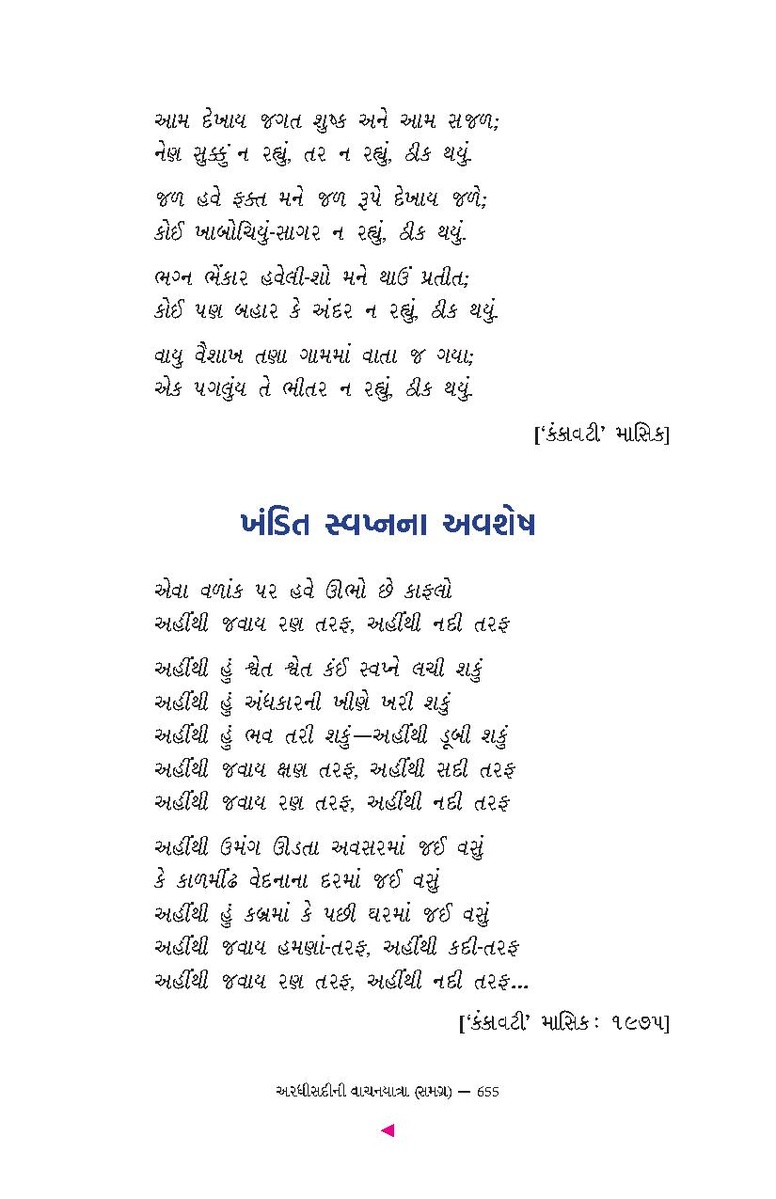 આમ દેખાય જગત શુષ્ક અને આમ સજળ;
નેણ સુક્કું ન રહ્યું, તર ન રહ્યું, ઠીક થયું.
જળ હવે ફક્ત મને જળ રૂપે દેખાય જળે;
કોઈ ખાબોચિયું-સાગર ન રહ્યું, ઠીક થયું.
ભગ્ન ભેંકાર હવેલી-શો મને થાઉં પ્રતીત;
કોઈ પણ બહાર કે અંદર ન રહ્યું, ઠીક થયું.
વાયુ વૈશાખ તણા ગામમાં વાતા જ ગયા;
એક પગલુંય તે ભીતર ન રહ્યું, ઠીક થયું.
[‘કંકાવટી’ માસિક]
ખંડિત સ્વપ્નના અવશેષ
એવા વળાંક પર હવે ઊભો છે કાફલો
અહીંથી જવાય રણ તરફ, અહીંથી નદી તરફ
અહીંથી હું શ્વેત શ્વેત કંઈ સ્વપ્ને લચી શકું
અહીંથી હું અંધકારની ખીણે ખરી શકું
અહીંથી હું ભવ તરી શકું—અહીંથી ડૂબી શકું
અહીંથી જવાય ક્ષણ તરફ, અહીંથી સદી તરફ
અહીંથી જવાય રણ તરફ, અહીંથી નદી તરફ
અહીંથી ઉમંગ ઊડતા અવસરમાં જઈ વસું
કે કાળમીંઢ વેદનાના દરમાં જઈ વસું
અહીંથી હું કબ્રમાં કે પછી ઘરમાં જઈ વસું
અહીંથી જવાય હમણાં-તરફ, અહીંથી કદી-તરફ
અહીંથી જવાય રણ તરફ, અહીંથી નદી તરફ...
[‘કંકાવટી’ માસિક: ૧૯૭૫]
અરધીસદીની વાચનયાત્રા (સમગ્ર) — 655